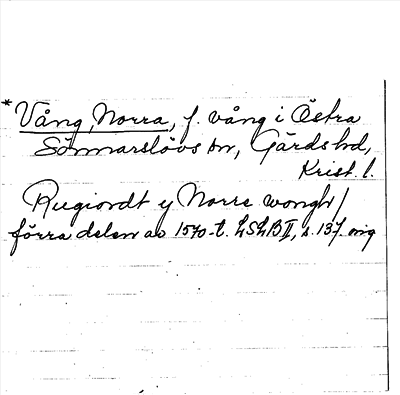 * Vång, Norra, f. vång i Östra
Sönnarslövs sn, Gärds hd,
Krist. l.
Rugiordt y Norre wongh /
förra delen av 1570-t. LSLB II, s. 137. orig